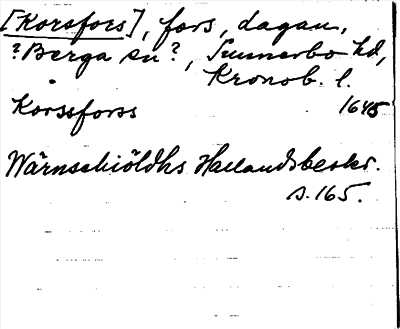 [Korsfors], fors, i lagan,
?Berga sn?, Sunnerbo hd,
Kronob. l.
Korssforss 1645
Wärnschiöldhs Hallandsbeskr.
s. 165.